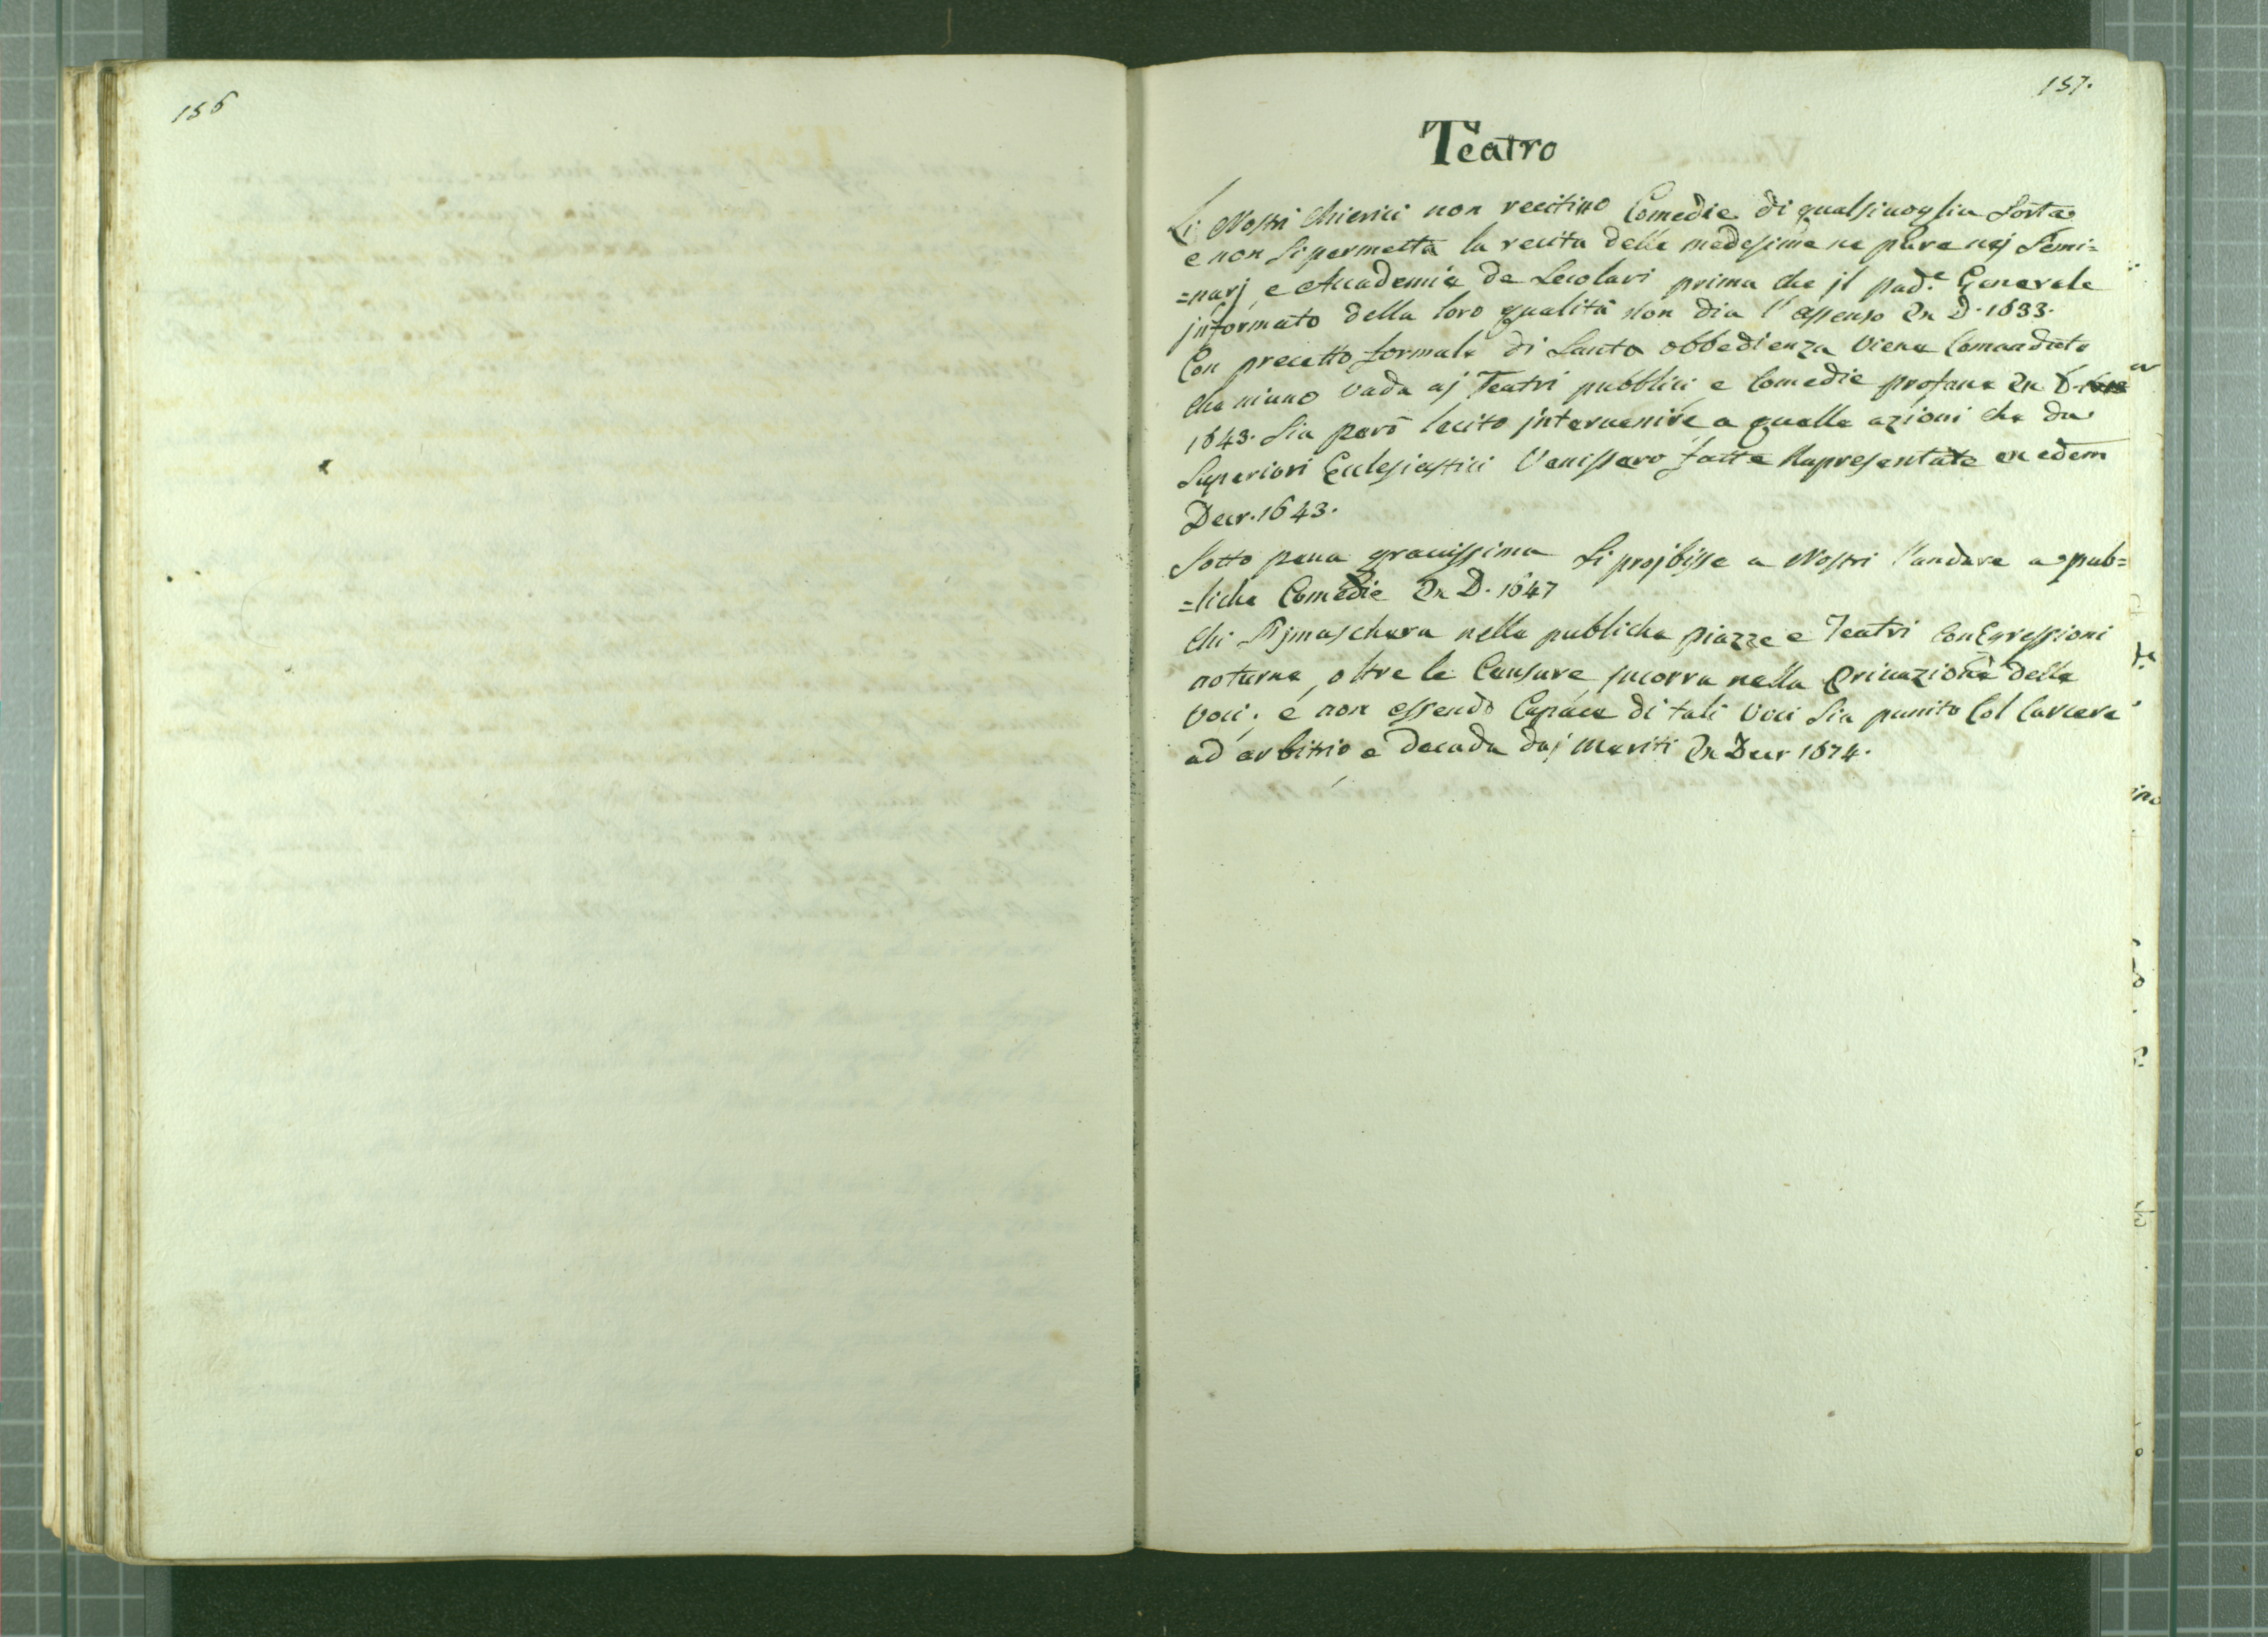 156
157.
Teatro
Li Nostri Chierici non recitino Comedie di qualsivoglia Sorta
e non si permetta la recita delle medesime ne pure nej Semi=
=narj, e Accademie de Scolari prima che jl pad.e Generale
jnformato della loro qualità non dia l'assenso Ex D. 1633.
Con precetto formale di Santa obbedienza viene Comandato
che niuno vada aj Teatri pubblici e Comedie profane Ex D.
1643. Sia però lecito jntervenire a quelle azioni che da
Superiori Eclesiastici Venissero fatte Rapresentate ex edem
Decr. 1643.
Sotto pena gravissima si projbisse a Nostri l'andare a pub=
=liche Comedie Ex D. 1647
Chi s'jmaschera nelle publiche piazze e Teatri con Egressioni
noturne, oltre le Censure jncorra nella Privazione delle
voci, e non essendo Capace di tali voci sia punito Col Carcere
ad arbitrio e decada daj meriti Ex Decr 1674.